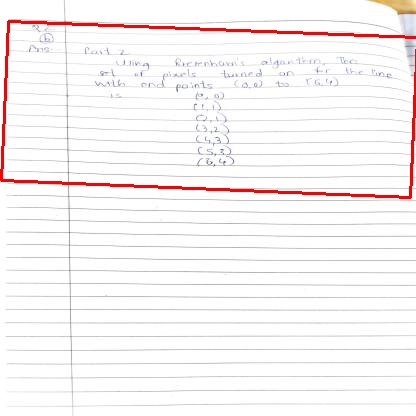 Q2
(b)
Ans: Part 2
Using Bresenham's algorithm, The
set of pixels turned on for the line
with end points (0,0) to (6,4)
is (0,0)
(1,1)
(2,1)
(3,2)
(4,3)
(5,3)
(6,4)